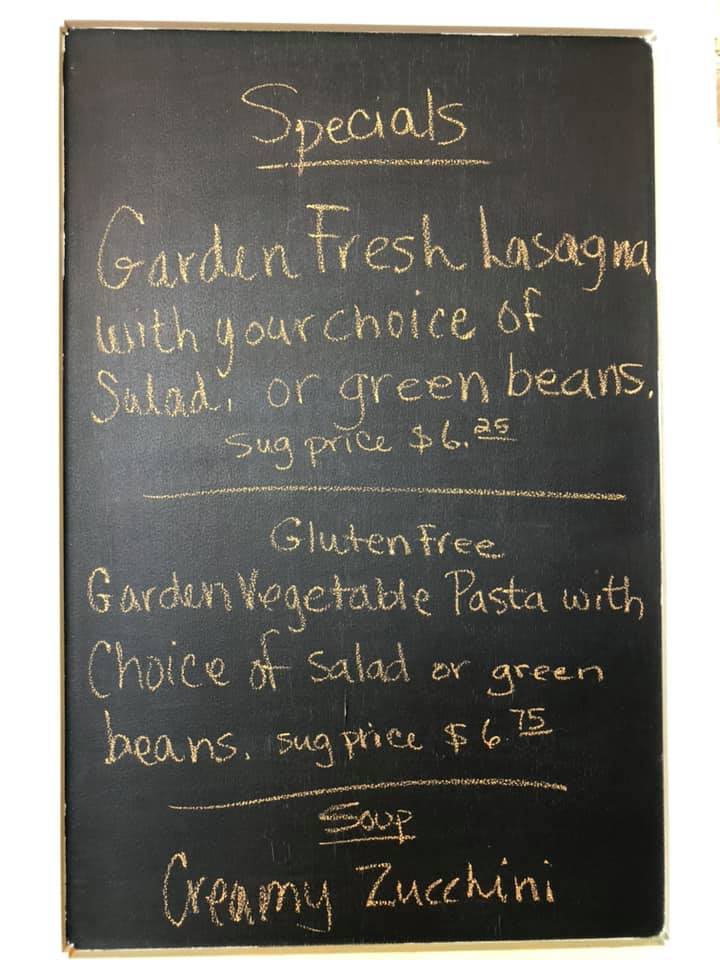 Specials
Garden Fresh Lasagna
with your choice of
Salad, or green beans.
sug price $6.25
Gluten Free
Garden Vegetable Pasta with
Choice of Salad or green
beans. sug price $6.75
Soup
Creamy Zucchini